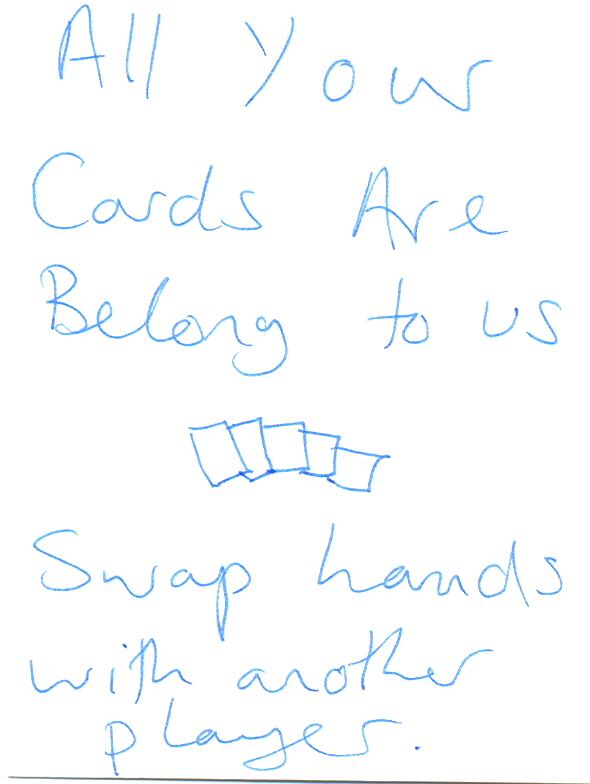 All Your
Cards Are
Belong to us
Swap hands
with another
player.